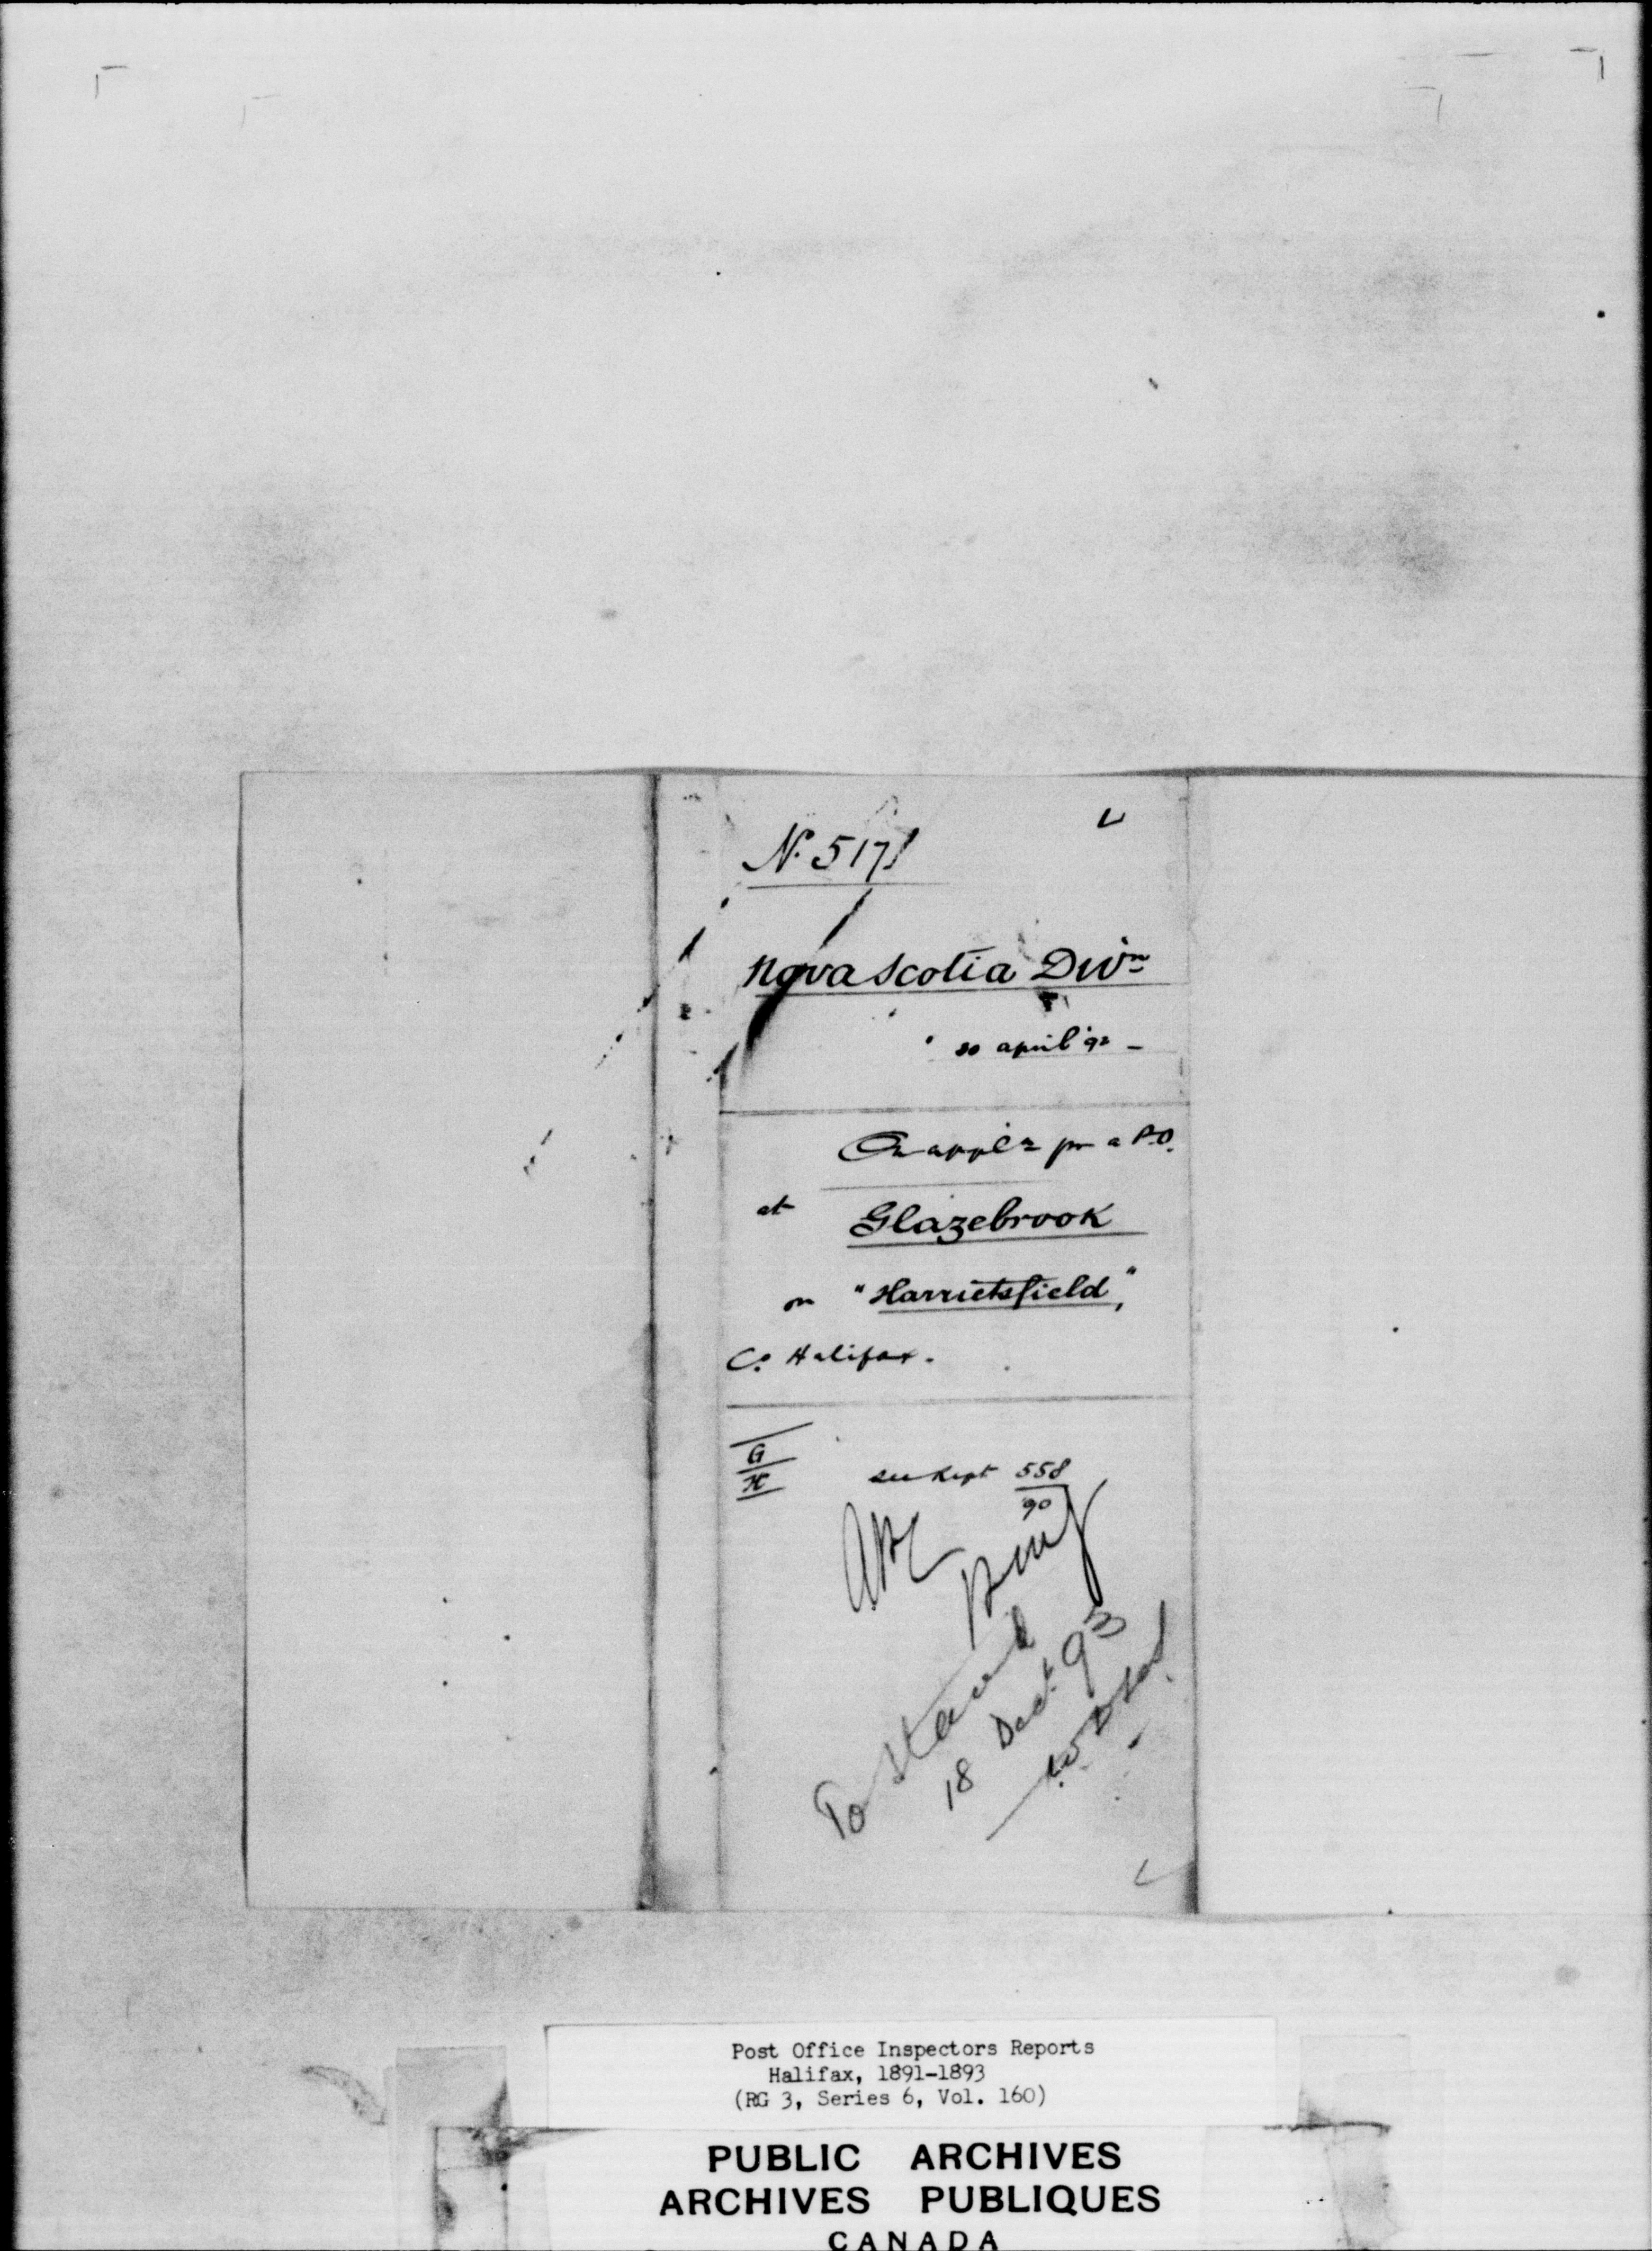 No. 517
Nova Scotia Divn
30 april '92 -
On appln for a P.O.
at Glazebrook
or "Harrietsfield",
Co. Halifax.
G
H
see Rept 558
90
To stand
18 Dec. 93
Post Office Inspectors Reports
Halifax, 1891-1893
(RG 3, Series 6, Vol. 160)
PUBLIC ARCHIVES
ARCHIVES PUBLIQUES
CANADA